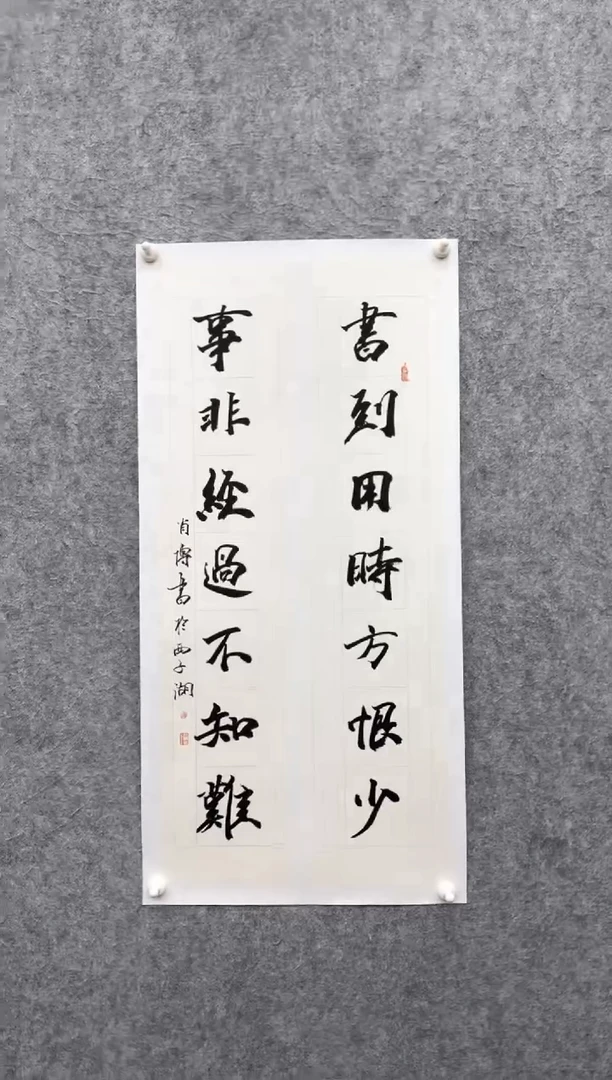 書到用時方恨少
事非經過不知難
肖博書於西子湖